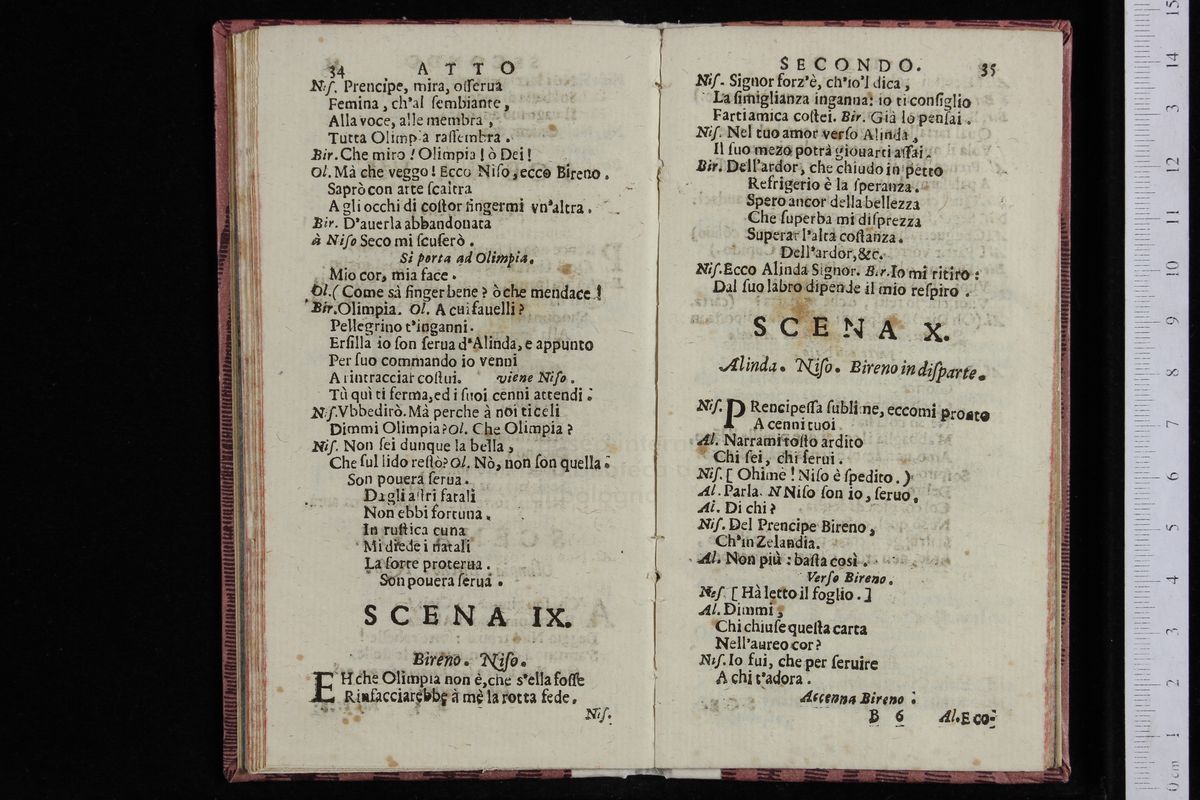 34 ATTO
Nis. Prencipe, mira, osserua
Femina, ch'al sembiante,
Alla voce, alle membra,
Tutta Olimpia rassembra.
Bir. Che miro! Olimpia! ò Dei!
Ol. Mà che veggo! Ecco Niso, ecco Bireno.
Saprò con arte scaltra
Agli occhi di costor fingermi vn'altra.
Bir. D'auerla abbandonata
à Niso Seco mi scuserò.
Si porta ad Olimpia.
Mio cor, mia face.
Ol. ( Come sà finger bene? ò che mendace!
Bir. Olimpia. Ol. A cui fauelli?
Pellegrino t'inganni.
Ersilla io son serua d'Alinda, e appunto
Per suo commando io venni
A rintracciar costui. viene Niso.
Tù quì ti ferma, ed i suoi cenni attendi.
Nis. Vbbedirò. Mà perche à noi ti celi
Dimmi Olimpia? Ol. Che Olimpia?
Nis. Non sei dunque la bella,
Che sul lido restò? Ol. Nò, non son quella.
Son pouera serua.
Dagli astri fatali
Non ebbi fortuna.
In rustica cuna
Mi diede i natali
La sorte proterua.
Son pouera serua.
SCENA IX.
Bireno. Niso.
EH che Olimpia non è, che s'ella fosse
Rinfacciarebbe à me la rotta fede.
Nis.
SECONDO. 35
Nis. Signor forz'è, ch'io'l dica,
La simiglianza inganna: io ti consiglio
Farti amica costei. Bir. Già lo pensai.
Nis. Nel tuo amor verso Alinda,
Il suo mezo potrà giouarti assai.
Bir. Dell'ardor, che chiudo in petto
Refrigerio è la speranza.
Spero ancor della bellezza
Che superba mi disprezza
Superar l'alta costanza.
Dell'ardor, &c.
Nis. Ecco Alinda Signor. Bir. Io mi ritiro:
Dal suo labro dipende il mio respiro.
SCENA X.
Alinda. Niso. Bireno in disparte.
Nis. PRencipessa sublime, eccomi pronto
A cenni tuoi.
Al. Narrami tosto ardito
Chi sei, chi serui.
Nis. [ Ohimè! Niso è spedito. )
Al. Parla. N Niso son io, seruo.
Al. Di chi?
Nis. Del Prencipe Bireno,
Ch'in Zelandia.
Al. Non più: basta così.
Verso Bireno.
Nis. [ Hà letto il foglio. ]
Al. Dimmi,
Chi chiuse questa carta
Nell'aureo cor?
Nis. Io fui, che per seruire
A chi t'adora.
Accenna Bireno.
B 6 Al. Eco-